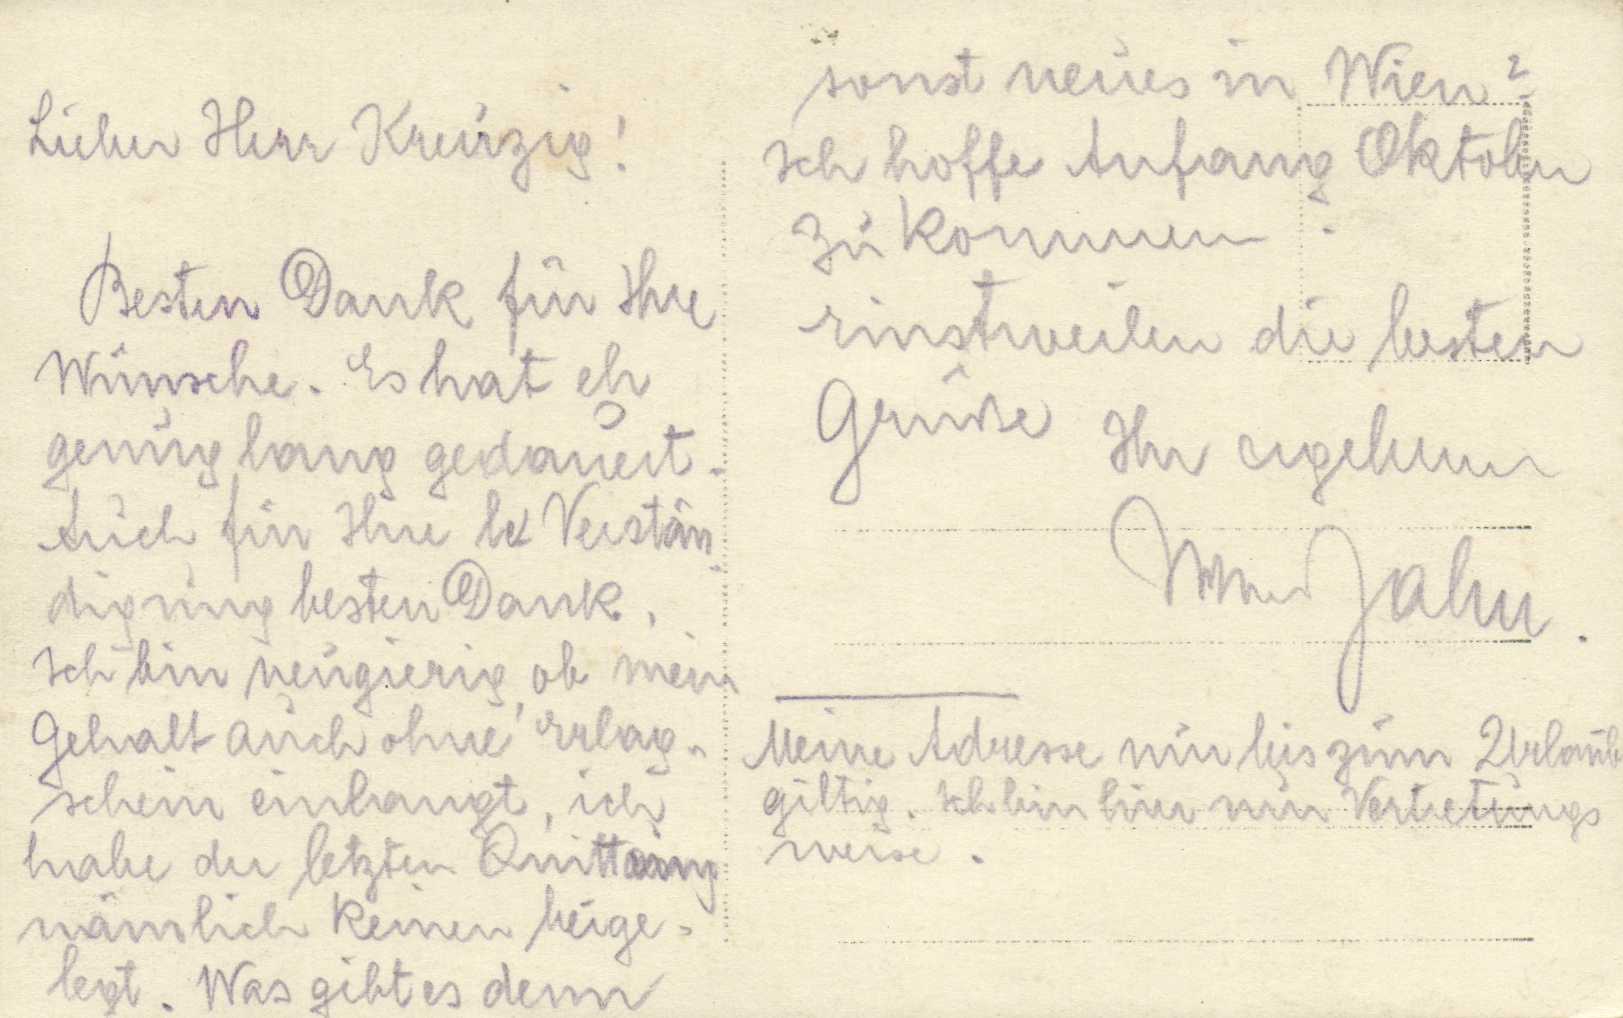 Lieber Herr Kreuzig!
Besten Dank für Ihre
Wünsche. Es hat eh
genug lang gedauert.
Auch für Ihre Verstän
digung besten Dank.
Ich bin neugierig, ob mein
Gehalt auch ohne Erlag-
schein einlangt, ich
habe der letzten Quittung
nämlich keinen beige-
legt. Was gibt es denn
sonst neues in Wien?
Ich hoffe Anfang Oktober
zu kommen.
einstweilen die besten
Grüße Ihr ergebener
Jahn.
Meine Adresse nur bis zum Urlaub
giltig. Ich bin hier nur Vertretungs
weise.